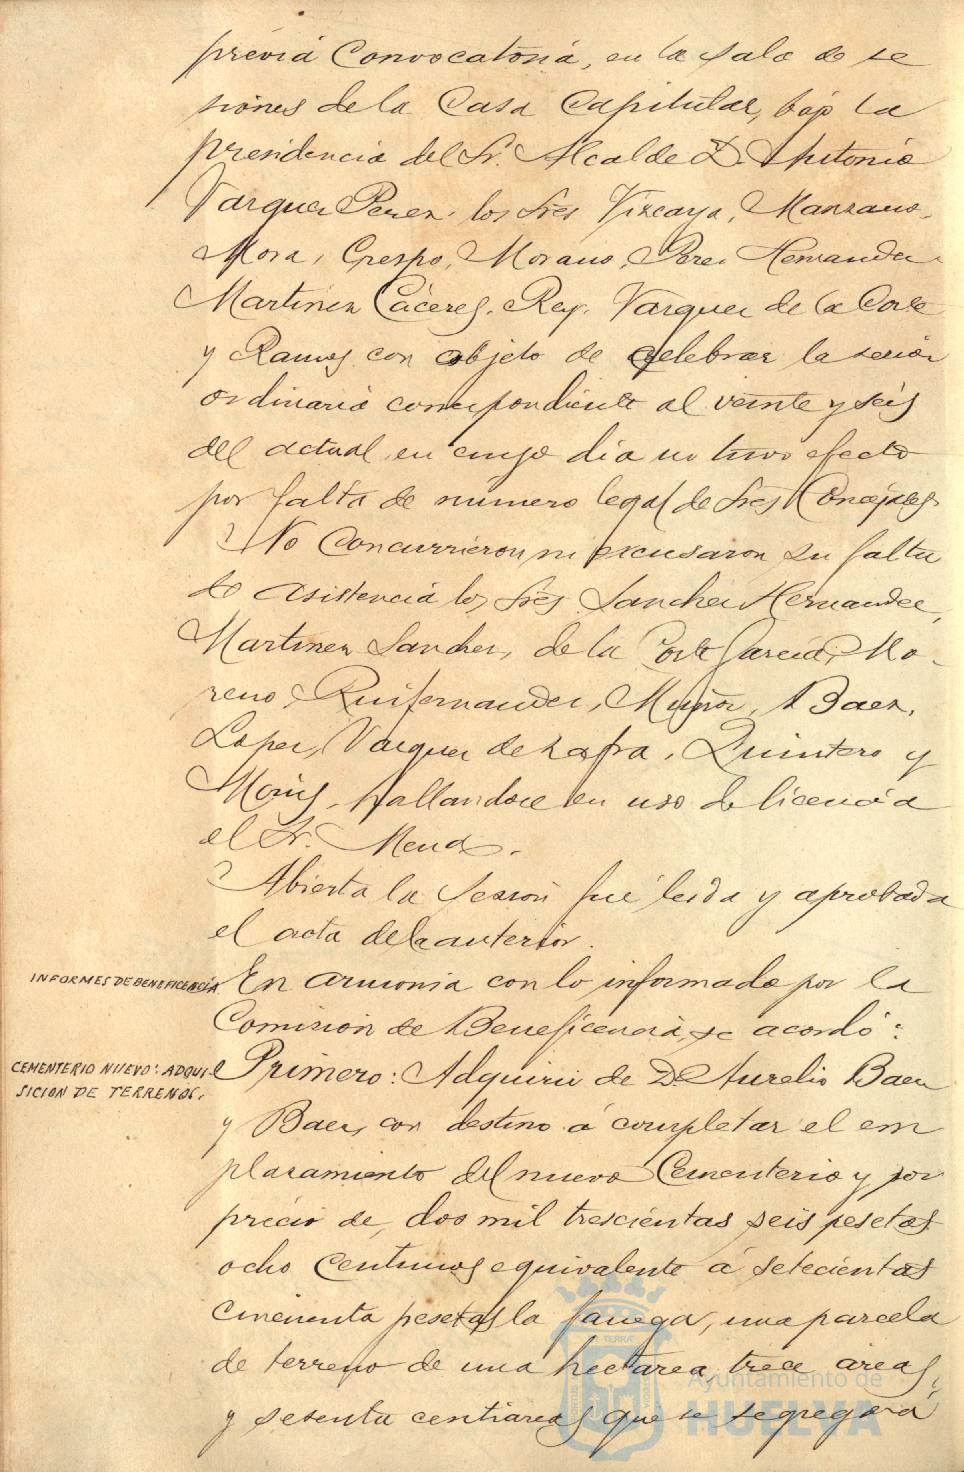 prévia Convocatoria, en la sala de se
siones de la Casa Capitular, bajo la
presidencia del Sr. Alcalde D. Antonio
Vazquez Perez, los Sres Vizcaya, Manzano,
Mora, Crespo, Morano, Perez Hernandez
Martinez Cáceres, Rey, Vazquez de la Corte
y Ramos con objeto de celebrar la sesión
ordinaria correspondiente al veinte y seis
del actual, en cuyo dia no tuvo efecto
por falta de número legal de Sres Concejales.
No Concurrieron ni excusaron su falta
de asistencia los Sres Sanchez Hernandez,
Martinez Sanchez, de la Corte Garcia, Mo-
reno, Ruifernandez, Muñoz, Baez,
Lopez, Vazquez de Zafra, Quintero y
hallandose en uso de licencia
el Sr. Mena.
Abierta la Sesión fué leida y aprobada
el acta de la anterior.
INFORMES DE BENEFICENCIA
En armonia con lo informado por la
Comisión de Beneficencia, se acordó:
CEMENTERIO NUEVO: ADQUI-
SICION DE TERRENOS.
Primero: Adquirir de D. Aurelio Baez
y Baez, con destino á completar el em
plazamiento del nuevo Cementerio y por
precio de, dos mil trescientas seis pesetas
ocho centimos equivalente á setecientas
cincuenta pesetas la fanega, una parcela
de terreno de una hectarea, trece areas,
y sesenta centiareas que se segregará
Ayuntamiento de
HUELVA